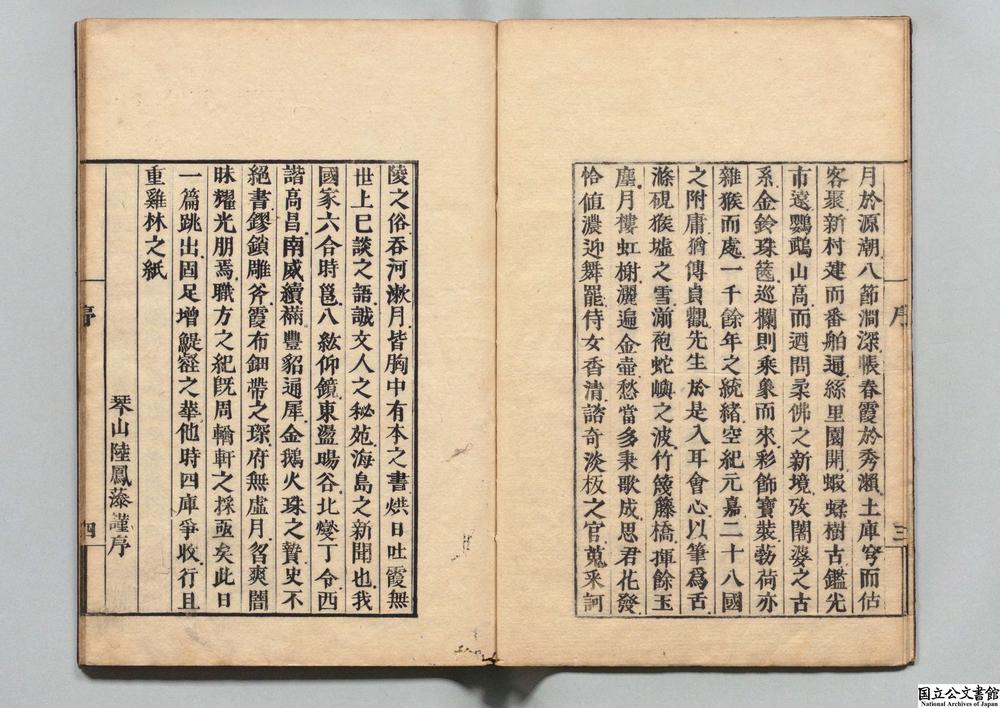 月於源潮八節澗深帳春霞於秀瀨土庫穹而估
客聚新村建而番舶通絲里園開蝦蟍樹古鑑光
市遠鸚鵡山高而逎問柔佛之新境攷闍婆之古
系金鈴珠簉巡欄則乘象而來彩飾寶裝勃荷亦
雜猴而處一千餘年之統緒空紀元嘉二十八國
之附庸猶傳貞觀先生於是入耳會心以筆爲舌
滌硯猴墟之雪湔袍蛇嶼之波竹篾籐橋揮餘玉
塵月樓虹榭灑遍金壷愁當多秉歌成思君花發
恰値濃迎舞罷侍女香清諮奇淡板之官蒐釆訶
序
三
陵之俗吞河漱月皆胸中有本之書烘日吐霞無
世上已談之語誠文人之秘苑海島之新聞也我
國家六合時邕八紘仰鏡東盪暘谷北燮丁令西
諧高昌南威續樠豐貂通犀金鵝火珠之贄史不
絕書鏐鎖雕斧霞布鈿帶之琛府無虛月曶爽闇
昧耀光朋焉職方之紀旣周輶軒之採亟矣此日
一篇跳出固足增鯷壑之華他時四庫爭收行且
重雞林之紙
琴山陸鳳藻謹序
序
四
国立公文書館
National Archives of Japan